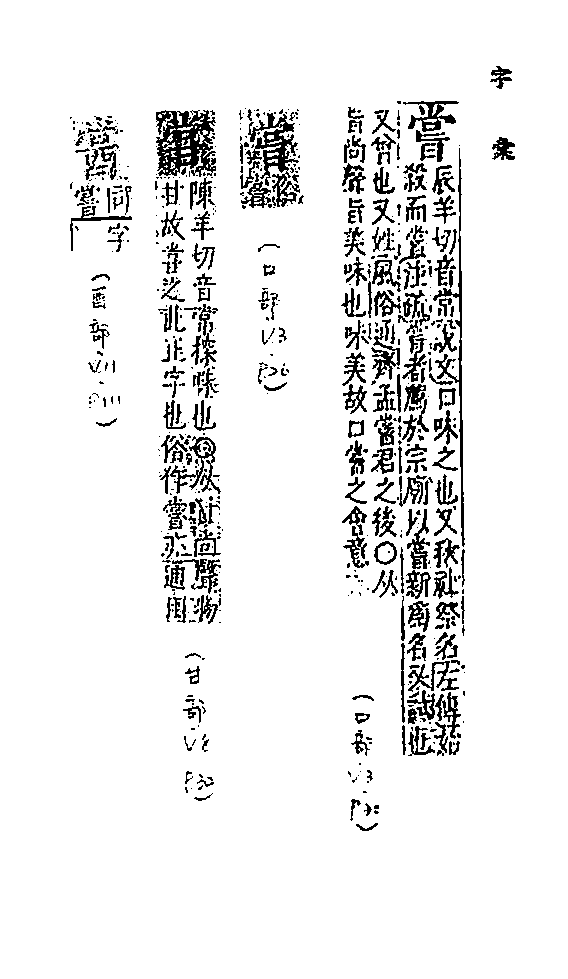 字彙
嘗
辰羊切音常說文口味之也又秋祉祭名左傳始
殺而嘗注疏嘗者薦於宗廟以嘗新爲名又試也
又曾也又姓風俗通齊孟嘗君之後○从
旨尚聲旨美味也味美故口嘗之會意
(口部
俗
嘗
(口部
陳羊切音常探味也◎从
尚聲物
甘故嘗之此正字也俗作嘗亦通用
(甘部
同
嘗
字
(酉部